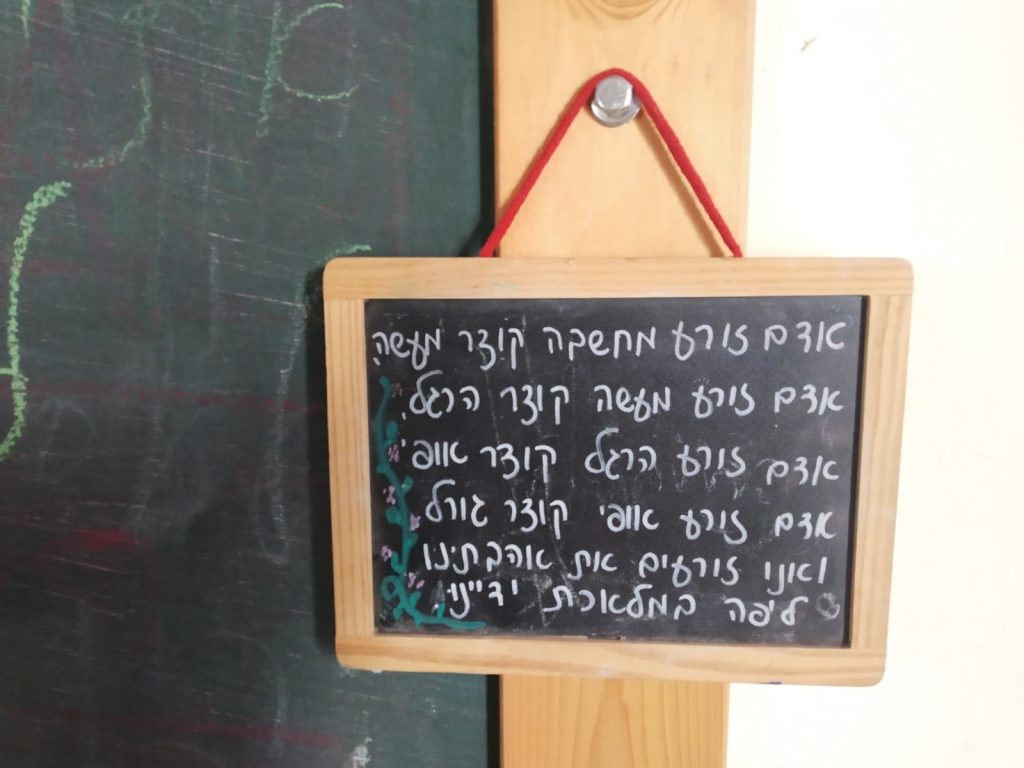 אדם זורע מחשבה קוצר מעשה
אדם זורע מעשה קוצר הרגל.
אדם זורע הרגל קוצר אופי
אדם זורע אופי קוצר גורל
ואנו זורעים את אהבתינו
ליפה במלאכת ידינו.